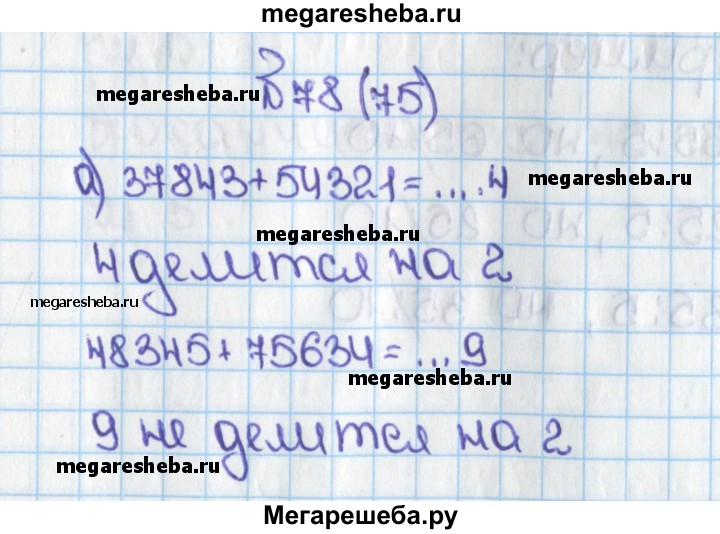 megaresheba.ru
78 (75)
megaresheba.ru
а) 37843+54321=....4
megaresheba.ru
megaresheba.ru
4 делится на 2
megaresheba.ru
48345+75634=...9
megaresheba.ru
9 не делится на 2
megaresheba.ru
Мегарешеба.ру